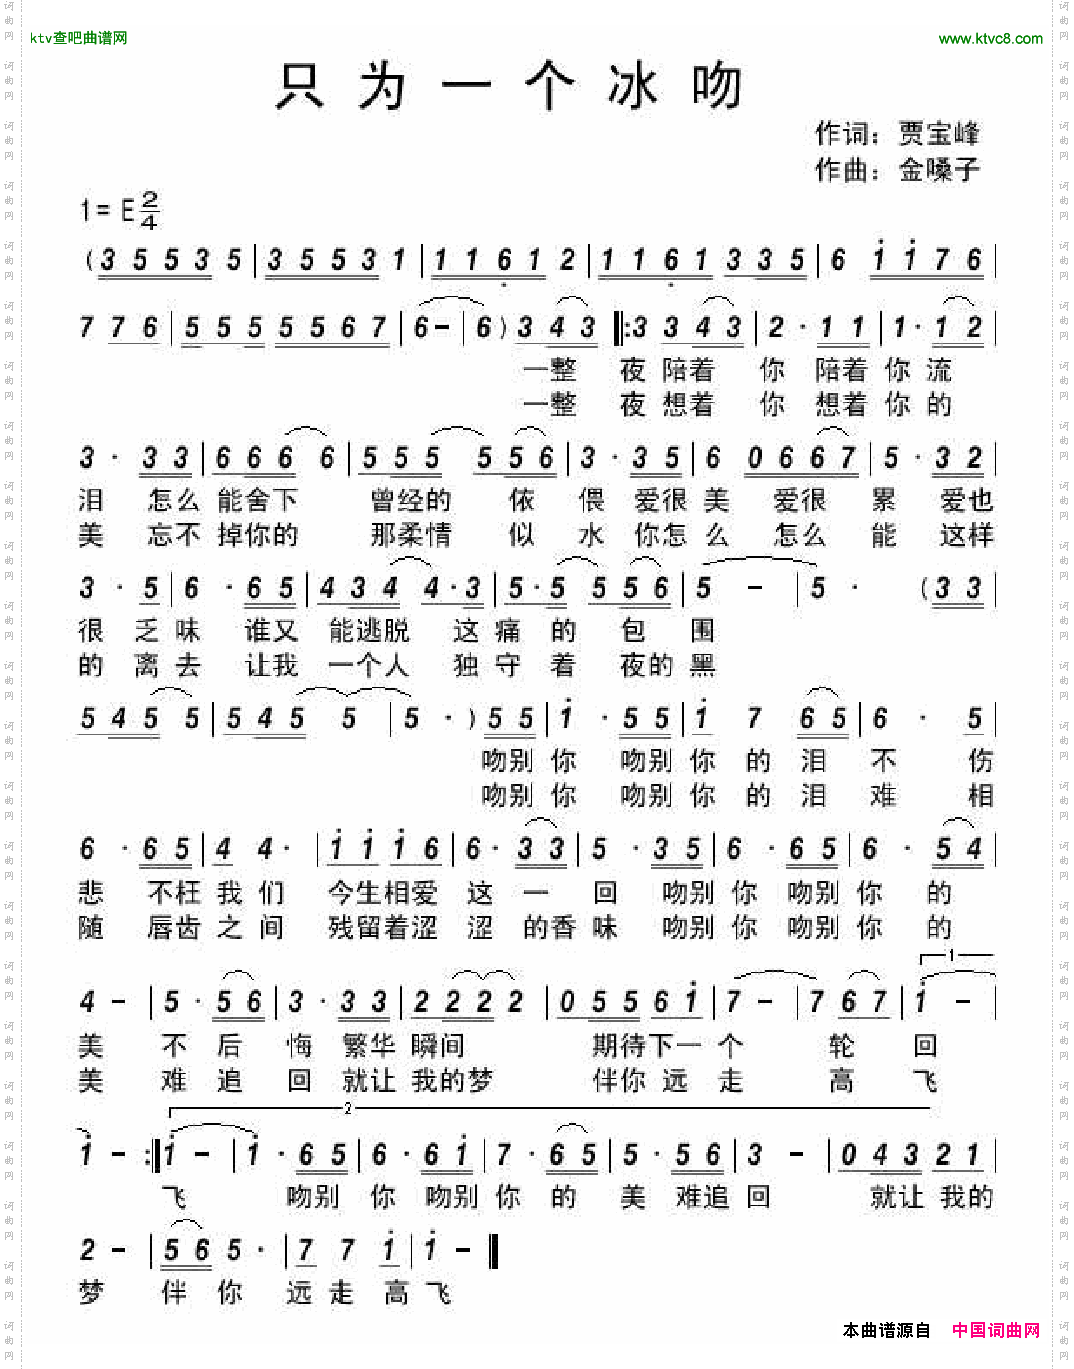 ktv查吧曲谱网 www.ktvc8.com
只为一个冰吻
作词：贾宝峰
作曲：金嗓子
1= E 2/4
(3 5 5 3 5 | 3 5 5 3 1 | 1 1 6 1 2 | 1 1 6 1 3 3 5 | 6 i i 7 6 |
7 7 6 | 5 5 5 5 5 6 7 | 6 - | 6 ) 3 4 3 |: 3 3 4 3 | 2 · 1 1 | 1 · 1 2 |
一整 夜 陪着 你 陪着 你 流
一整 夜 想着 你 想着 你 的
3 · 3 3 | 6 6 6 6 | 5 5 5 5 5 6 | 3 · 3 5 | 6 0 6 6 7 | 5 · 3 2 |
泪 怎么 能舍下 曾经的 依 偎 爱很 美 爱很 累 爱也
美 忘不 掉你的 那柔情 似 水 你怎 么 怎么 能 这样
3 · 5 | 6 · 6 5 | 4 3 4 4 · 3 | 5 · 5 5 5 6 | 5 - | 5 · ( 3 3 |
很 乏 味 谁又 能逃脱 这 痛 的 包 围
的 离 去 让我 一个人 独 守 着 夜的 黑
5 4 5 5 | 5 4 5 5 | 5 · ) 5 5 | i · 5 5 | i 7 6 5 | 6 · 5 |
吻别 你 吻别 你 的 泪 不 伤
吻别 你 吻别 你 的 泪 难 相
6 · 6 5 | 4 4 · | i i i 6 | 6 · 3 3 | 5 · 3 5 | 6 · 6 5 | 6 · 5 4 |
悲 不枉 我 们 今生相爱 这 一 回 吻别 你 吻别 你 的
随 唇齿 之 间 残留着涩 涩 的香 味 吻别 你 吻别 你 的
1
4 - | 5 · 5 6 | 3 · 3 3 | 2 2 2 2 | 0 5 5 6 i | 7 - | 7 6 7 | i - |
美 不 后 悔 繁华 瞬间 期待下一 个 轮 回
美 难 追 回 就让 我的梦 伴你 远 走 高 飞
2
i - :| i - | i · 6 5 | 6 · 6 i | 7 · 6 5 | 5 · 5 6 | 3 - | 0 4 3 2 1 |
飞 吻别 你 吻别 你 的 美 难追 回 就让 我的
2 - | 5 6 5 · | 7 7 i | i - ‖
梦 伴 你 远 走 高 飞
本曲谱源自 中国词曲网
词曲网